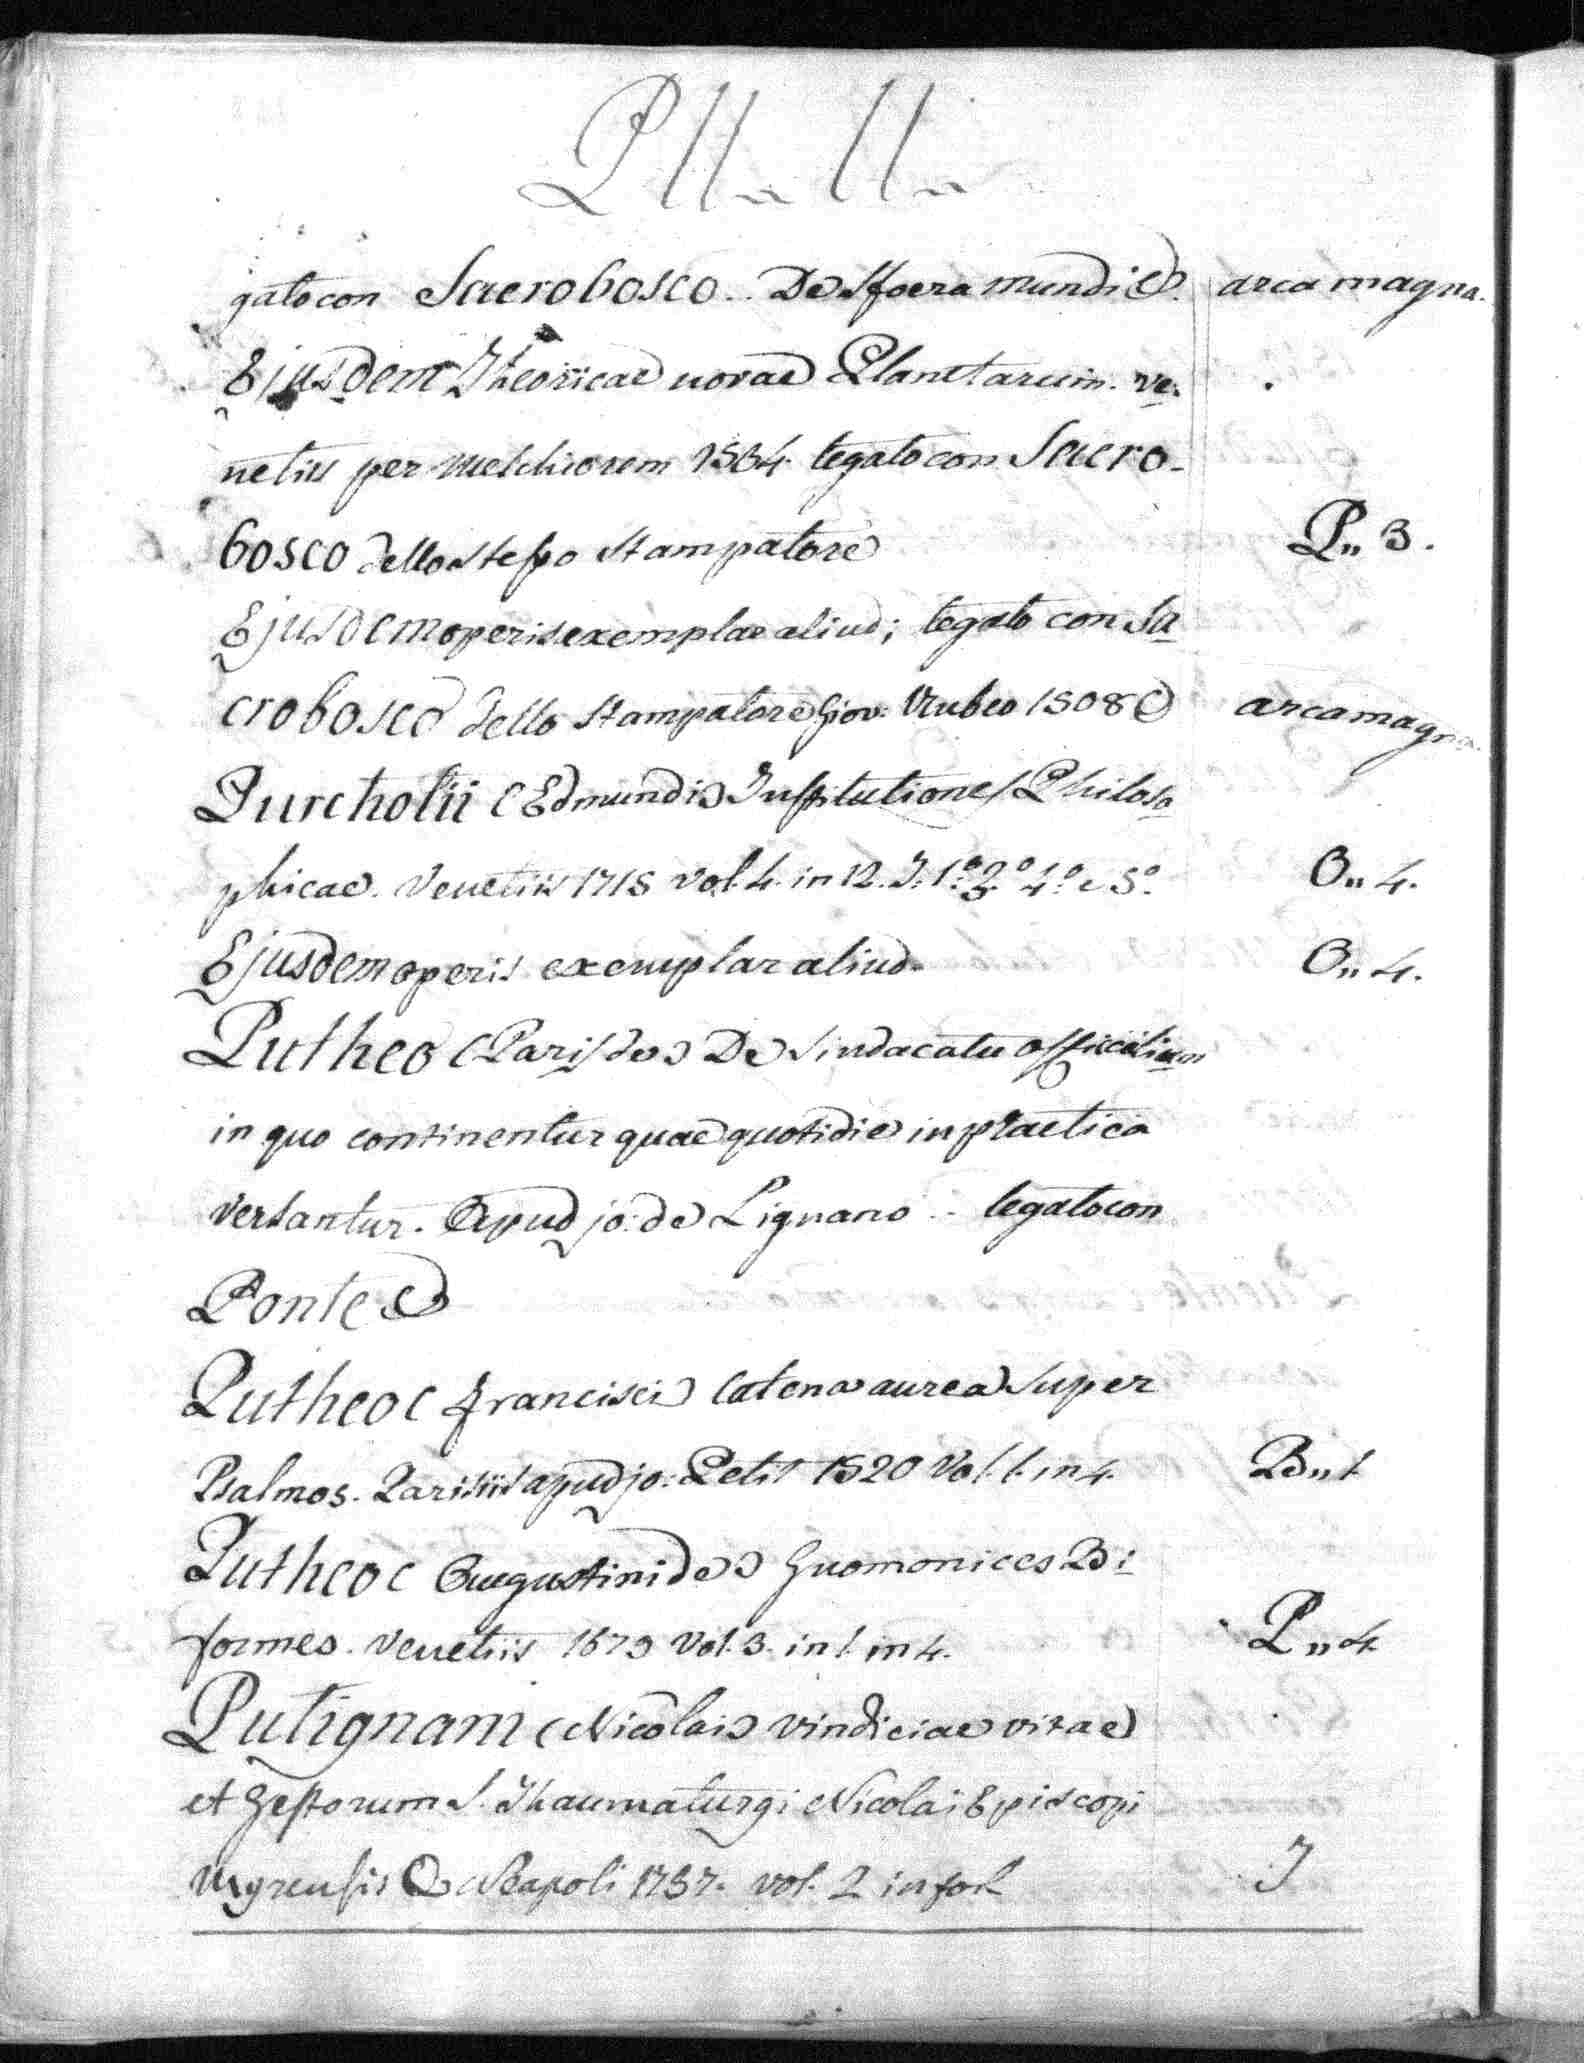 gato con Sacrobosco.. De Sfoera mundi @. arca magna.
Ejusdem Theoricae novae Planetarum. Ve-
netiis per Melchiorem 1564. legato con Sacro-
bosco dello stesso Stampatore P„ 3.
Ejusdem operis exemplar aliud; legato con Sa
crobosco dello Stampatore Giov: Rubeo 1508 @ arca magna.
Purchotii (Edmundi) Institutiones Philoso
phicae. Venetiis 1715 vol. 4. in 12. T. 1.º 3.º 4.º e 5.º O„ 4.
Ejusdem operis exemplar aliud. O„ 4.
Putheo (Paris de) De Sindacatu officialium
in quo continentur quae quotidie in practica
versantur. Apud jo: de Lignano .. legato con
Ponte @
Putheo (Francisci) Catena aurea super
Psalmos. Parisiis apud jo: Petit 1520 Vol. 1. in 4. B„ 1
Putheo (Augustini de) Gnomonices Bi
formes. Venetiis 1679 Vol. 3. in 1. in 4. P„ 4
Putignani (Nicolai) Vindiciae vitae
et Gestorum S. Thaumaturgi Nicolai Episcopi
Myrensis @ Neapoli 1757. vol. 2 in fol. I